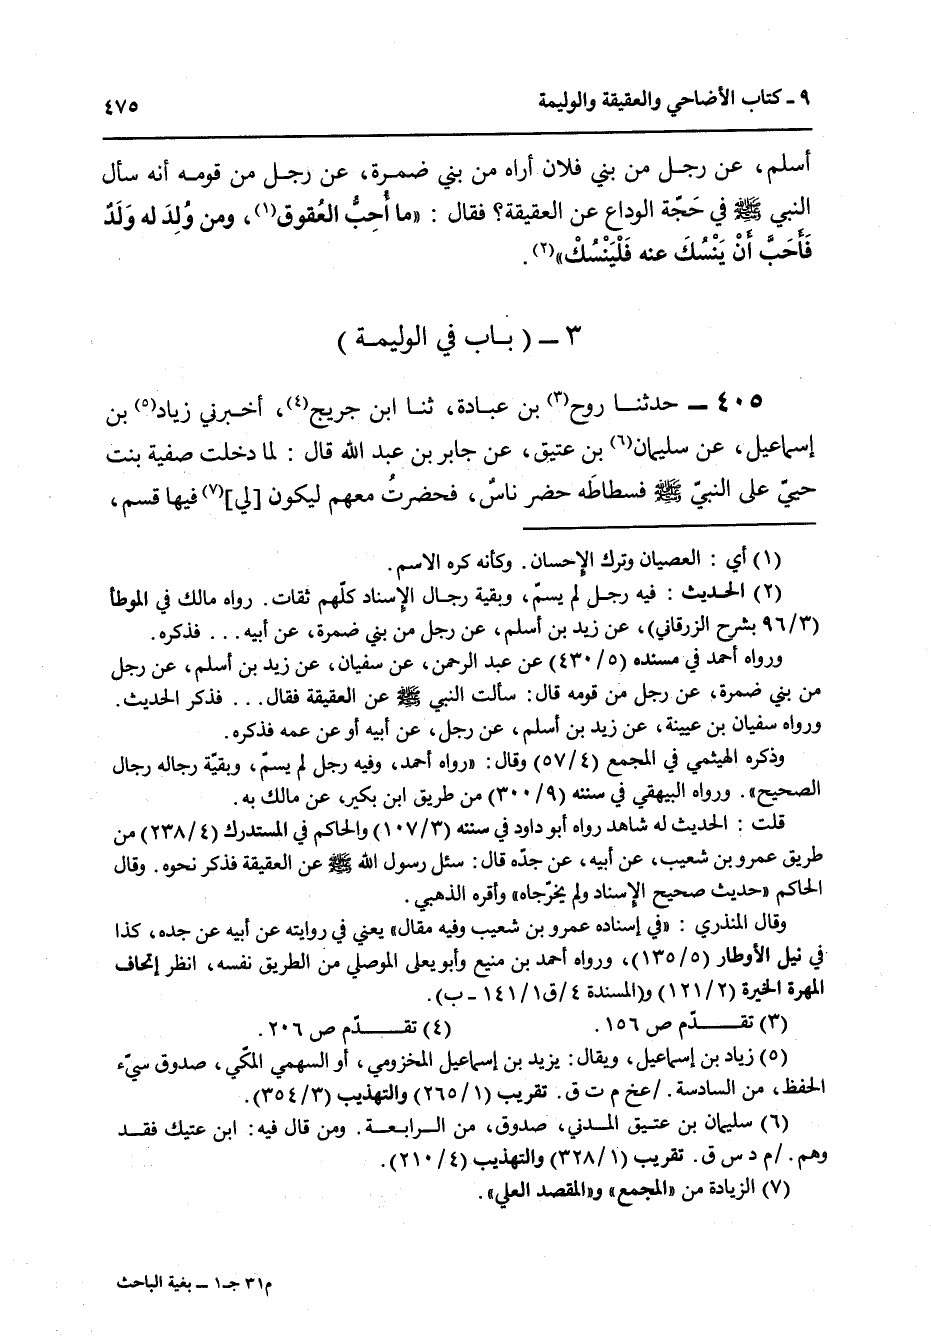 ٩ ـ كتاب الأضاحي والعقيقة والوليمة ٤٧٥
أسلم، عن رجل من بني فلان أراه من بني ضمرة، عن رجل من قومه أنه سأل
النبي ﷺ في حَجّة الوداع عن العقيقة؟ فقال : «ما أُحِبُّ العُقوق(١)، ومن وُلِدَ له وَلَدٌ
فَأَحَبَّ أَنْ يَنْسُكَ عنه فَلْيَنْسُكْ»(٢).
٣ ـ ( باب في الوليمة )
٤٠٥ ـ حدثنا روح(٣) بن عبادة، ثنا ابن جريج(٤)، أخبرني زياد(٥) بن
إسماعيل، عن سليمان(٦) بن عتيق، عن جابر بن عبد الله قال : لما دخلت صفية بنت
حييّ على النبيّ ﷺ فسطاطَه حضر ناسٌ، فحضرتُ معهم ليكون [لي](٧) فيها قسم،
(١) أي : العصيان وترك الإحسان. وكأنه كره الاسم.
(٢) الحديث : فيه رجل لم يسمّ، وبقية رجال الإسناد كلّهم ثقات. رواه مالك في الموطأ
(٩٦/٣ بشرح الزرقاني)، عن زيد بن أسلم، عن رجل من بني ضمرة، عن أبيه... فذكره.
ورواه أحمد في مسنده (٤٣٠/٥) عن عبد الرحمن، عن سفيان، عن زيد بن أسلم، عن رجل
من بني ضمرة، عن رجل من قومه قال: سألت النبي ﷺ عن العقيقة فقال... فذكر الحديث.
ورواه سفيان بن عيينة، عن زيد بن أسلم، عن رجل، عن أبيه أو عن عمه فذكره.
وذكره الهيثمي في المجمع (٥٧/٤) وقال: «رواه أحمد، وفيه رجل لم يسمّ، وبقيّة رجاله رجال
الصحيح». ورواه البيهقي في سننه (٣٠٠/٩) من طريق ابن بكير، عن مالك به.
قلت : الحديث له شاهد رواه أبو داود في سننه (١٠٧/٣) والحاكم في المستدرك (٢٣٨/٤) من
طريق عمرو بن شعيب، عن أبيه، عن جدّه قال: سئل رسول الله ﷺ عن العقيقة فذكر نحوه. وقال
الحاكم «حديث صحيح الإسناد ولم يخرّجاه» وأقره الذهبي.
وقال المنذري : «في إسناده عمرو بن شعيب وفيه مقال» يعني في روايته عن أبيه عن جده، كذا
في نيل الأوطار (١٣٥/٥)، ورواه أحمد بن منيع وأبو يعلى الموصلي من الطريق نفسه، انظر إتحاف
المهرة الخيرة (١٢١/٢) و(المسندة ٤/ق١٤١/١ ـ ب).
(٣) تقـــدّم ص ١٥٦. (٤) تقـــدّم ص ٢٠٦.
(٥) زياد بن إسماعيل، ويقال: يزيد بن إسماعيل المخزومي، أو السهمي المكّي، صدوق سيّء
الحفظ، من السادسة. /عخ م ت ق. تقريب (٢٦٥/١) والتهذيب (٣٥٤/٣).
(٦) سليمان بن عتيق المدني، صدوق، من الرابعة. ومن قال فيه: ابن عتيك فقد
وهم. /م د س ق. تقريب (٣٢٨/١) والتهذيب (٢١٠/٤).
(٧) الزيادة من «المجمع» و«المقصد العلي».
م٣١ جـ١ ـ بغية الباحث